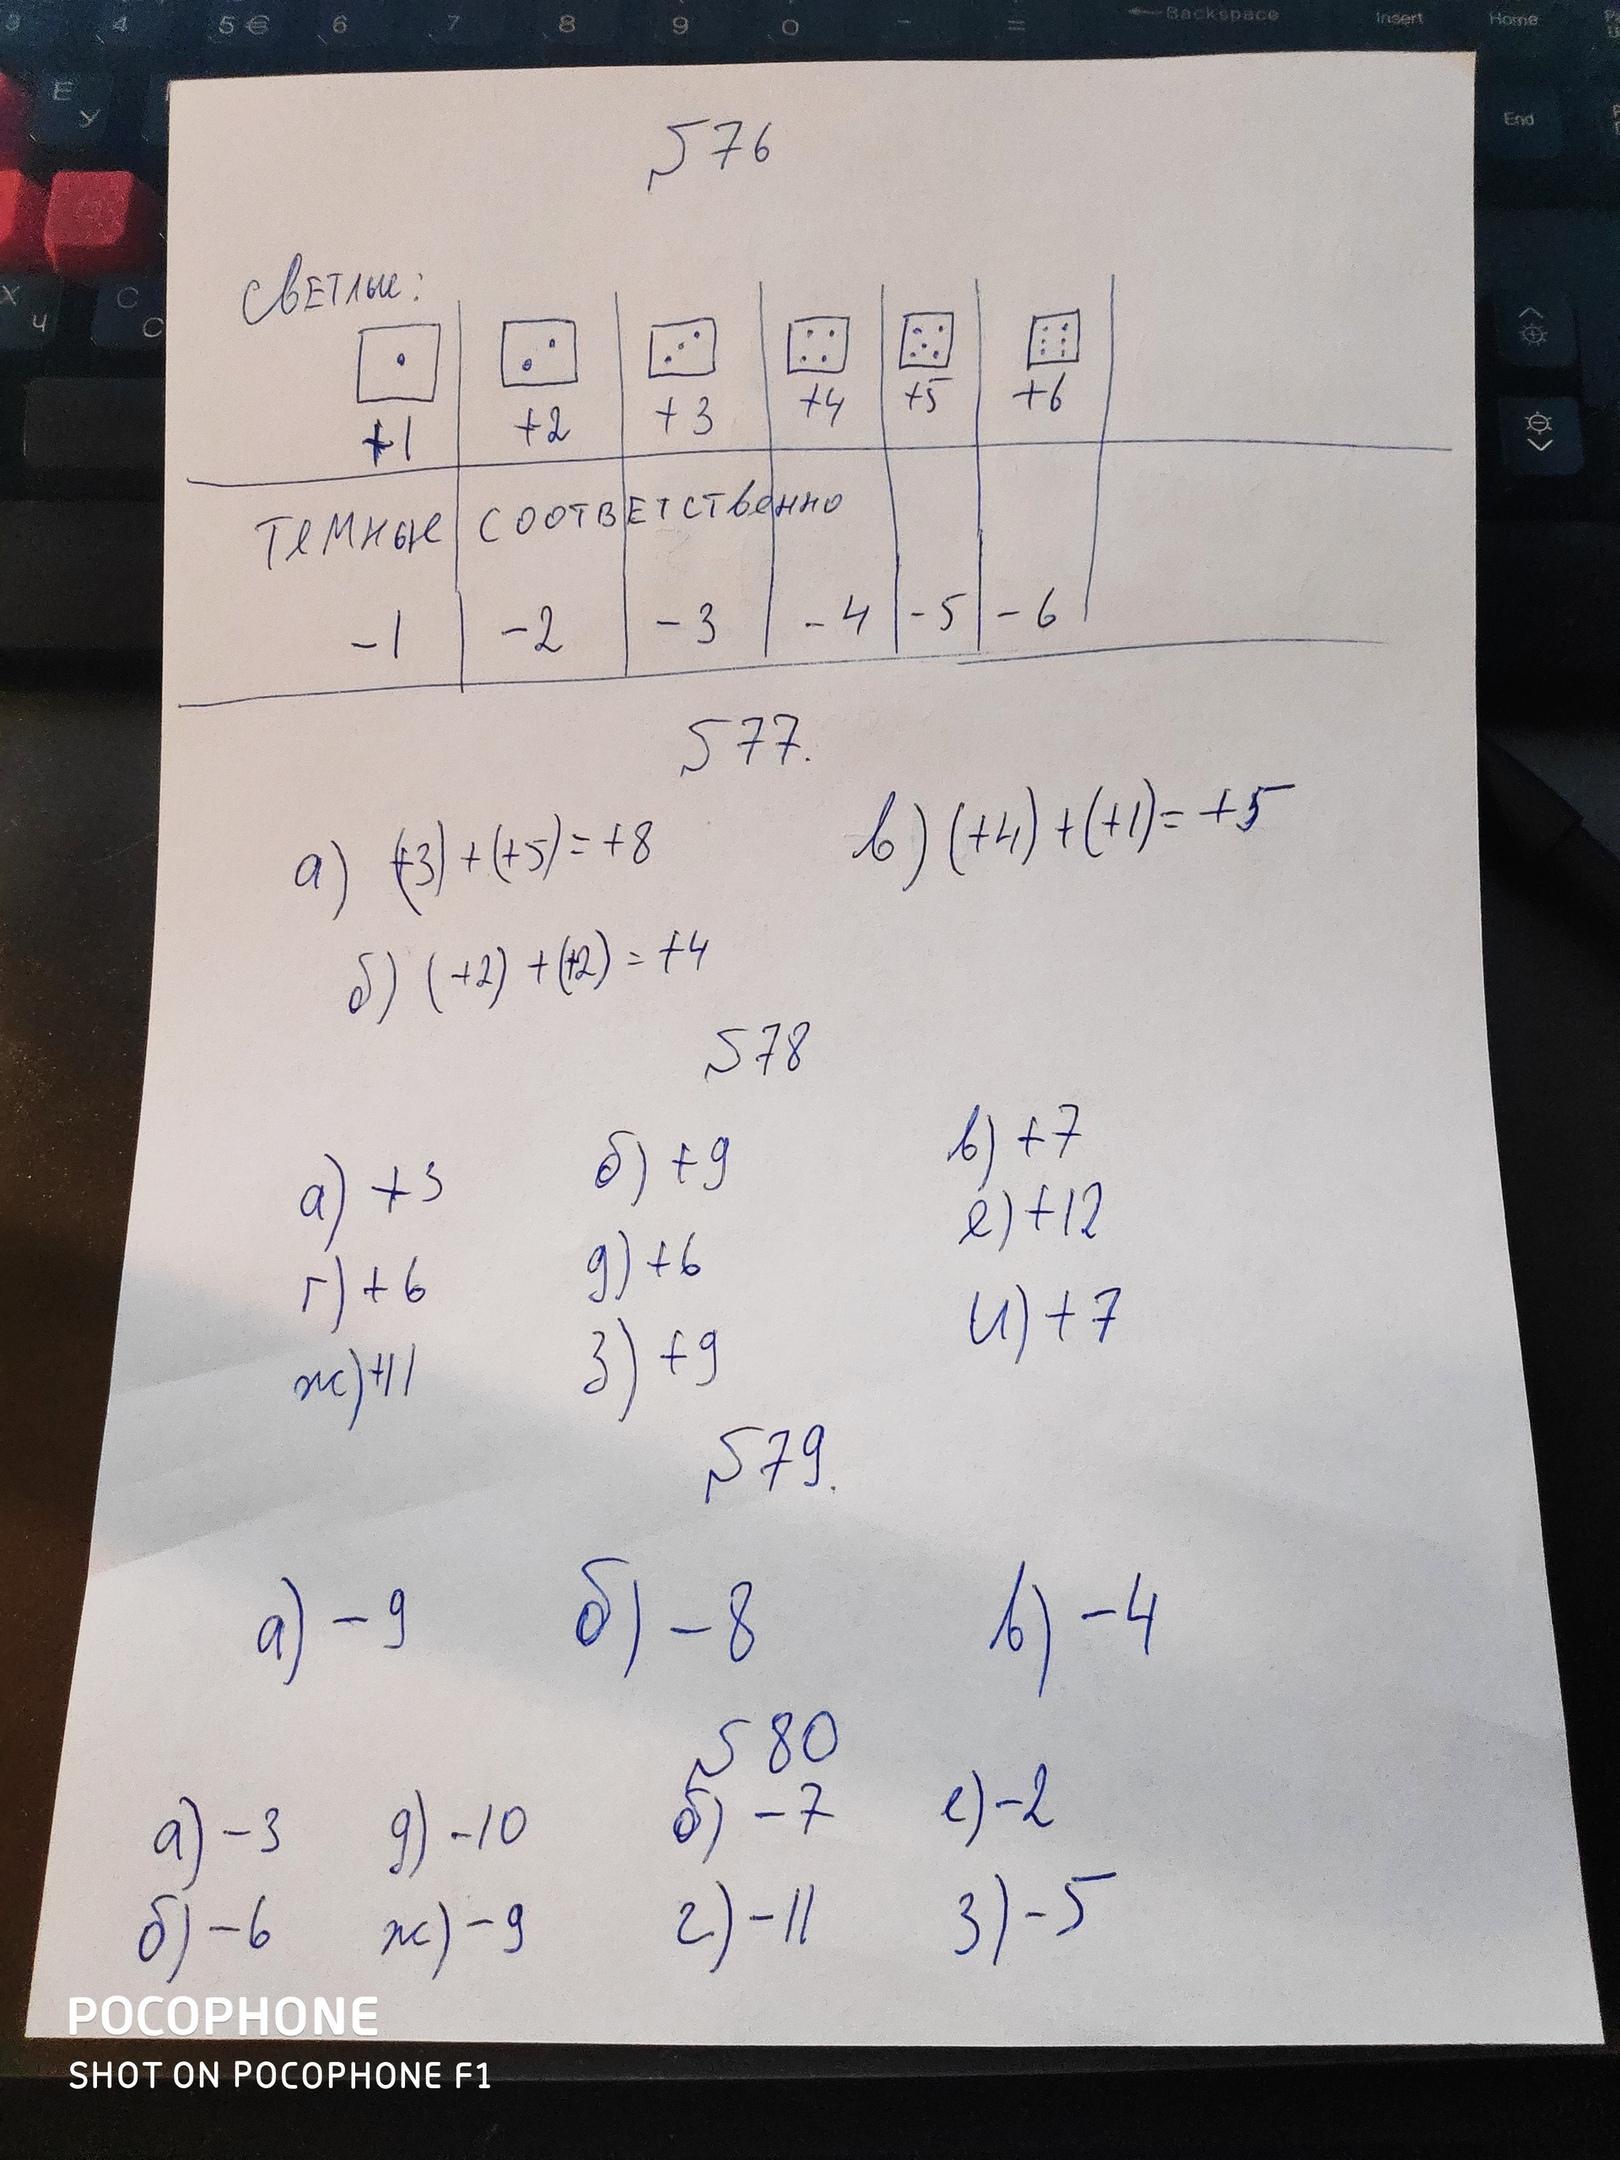 3 4 5 € 6 7 8 9 0 - = Backspace Insert Home
Е У End
Х Ч С С
576
Светлые:
+1 +2 +3 +4 +5 +6
Темные соответственно
-1 -2 -3 -4 -5 -6
577.
а) (+3) + (+5) = +8 в) (+4) + (+1) = +5
б) (+2) + (+2) = +4
578
а) +3 б) +9 в) +7
г) +6 д) +6 е) +12
ж) +11 з) +9 и) +7
579.
а) -9 б) -8 в) -4
580
а) -3 д) -10 б) -7 е) -2
б) -6 ж) -9 г) -11 з) -5
POCOPHONE
SHOT ON POCOPHONE F1